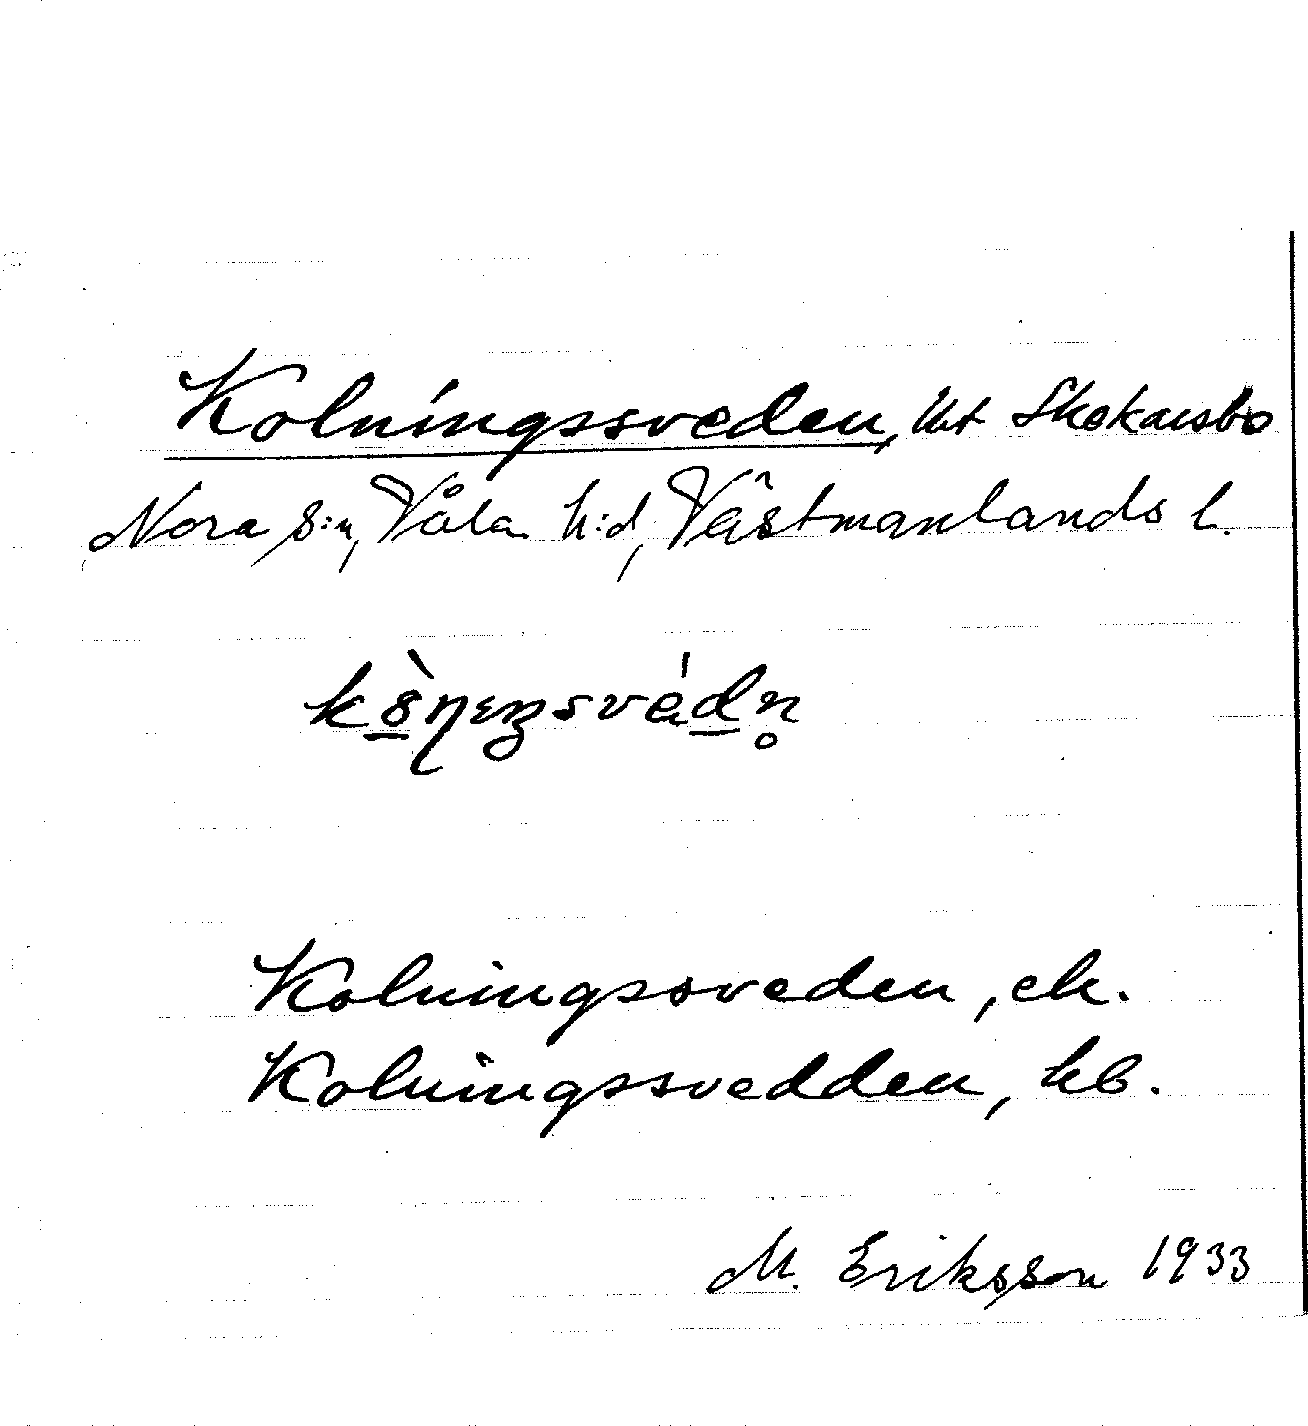 Kolningssveden, lht Skekarsbo
Nora s:n, Våla h:d, Västmanlands l.
Kolningssveden, ek.
Kolningssvedden, hb.
M. Eriksson 1933